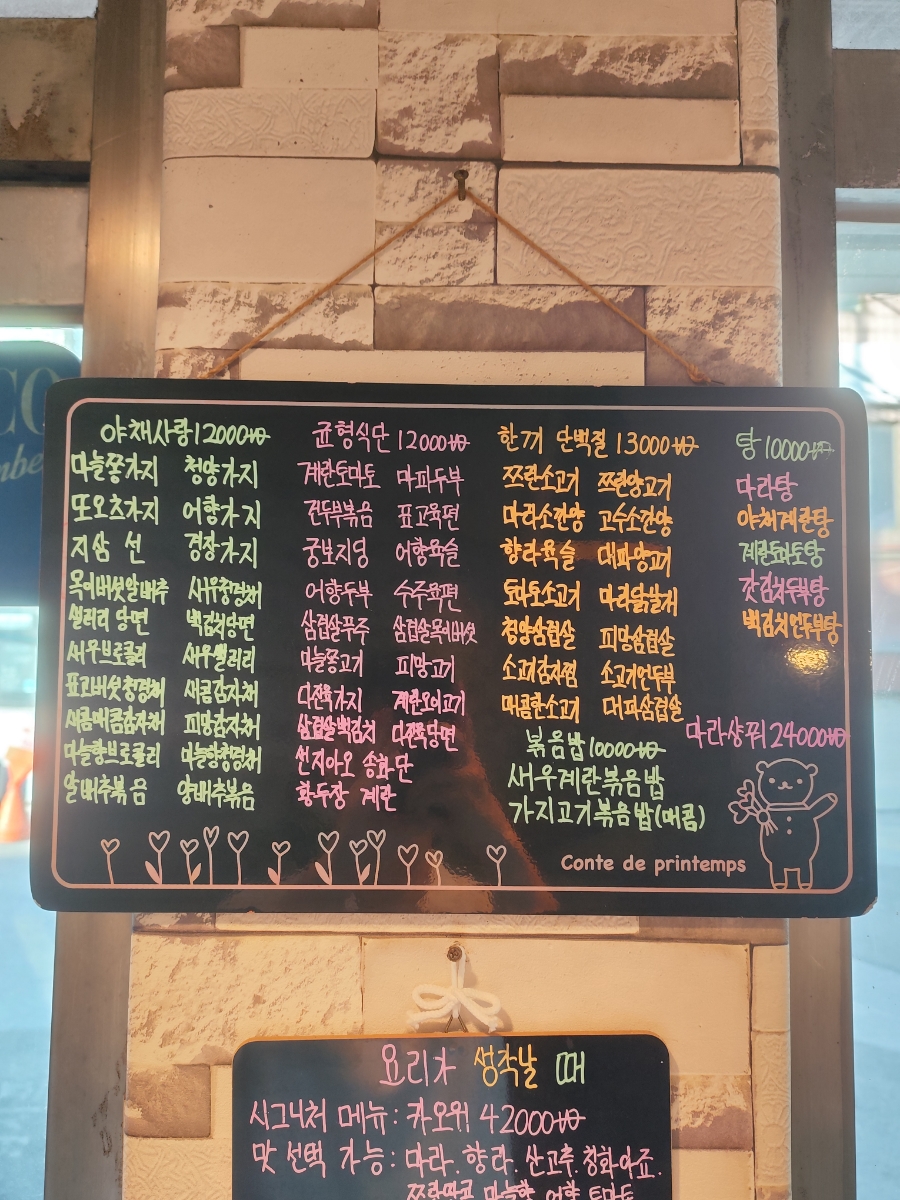 CO
mbe
야채사랑 12000₩
마늘쫑가지 청양가지
또오츠가지 어향가지
지삼선 경장가지
목이버섯알배추 새우청경채
샐러리 당면 백김치당면
새우브로콜리 새우샐러리
표고버섯청경채 새콤감자채
새콤매콤감자채 피망감자채
마늘향브로콜리 마늘향청경채
알배추볶음 양배추볶음
균형식단 12000₩
계란토마토 마파두부
건두부볶음 표고육편
궁보지딩 어향육슬
어향두부 수주육편
삼겹살부주 삼겹살목이버섯
마늘쫑고기 피망고기
다진육가지 계란오이고기
삼겹살백김치 다진육당면
썬지아오 송화단
황두장 계란
한끼 단백질 13000₩
쯔란소고기 쯔란양고기
마라소간양 고수소간양
향라육슬 대파양고기
토마토소고기 마라닭날개
청양삼겹살 피망삼겹살
소고기감자찜 소고기언두부
매콤한소고기 대파삼겹살
볶음밥 10000₩
새우계란볶음밥
가지고기볶음밥(매콤)
탕 10000₩
마라탕
야채계란탕
계란토마토탕
갓김치두부탕
백김치언두부탕
마라샹궈 24000₩
Conte de printemps
요리가 생각날 때
시그니처 메뉴: 카오위 42000₩
맛 선택 가능: 마라. 향라. 산고추. 청화아죠.
쯔란면코 마늘향 어향 토마토